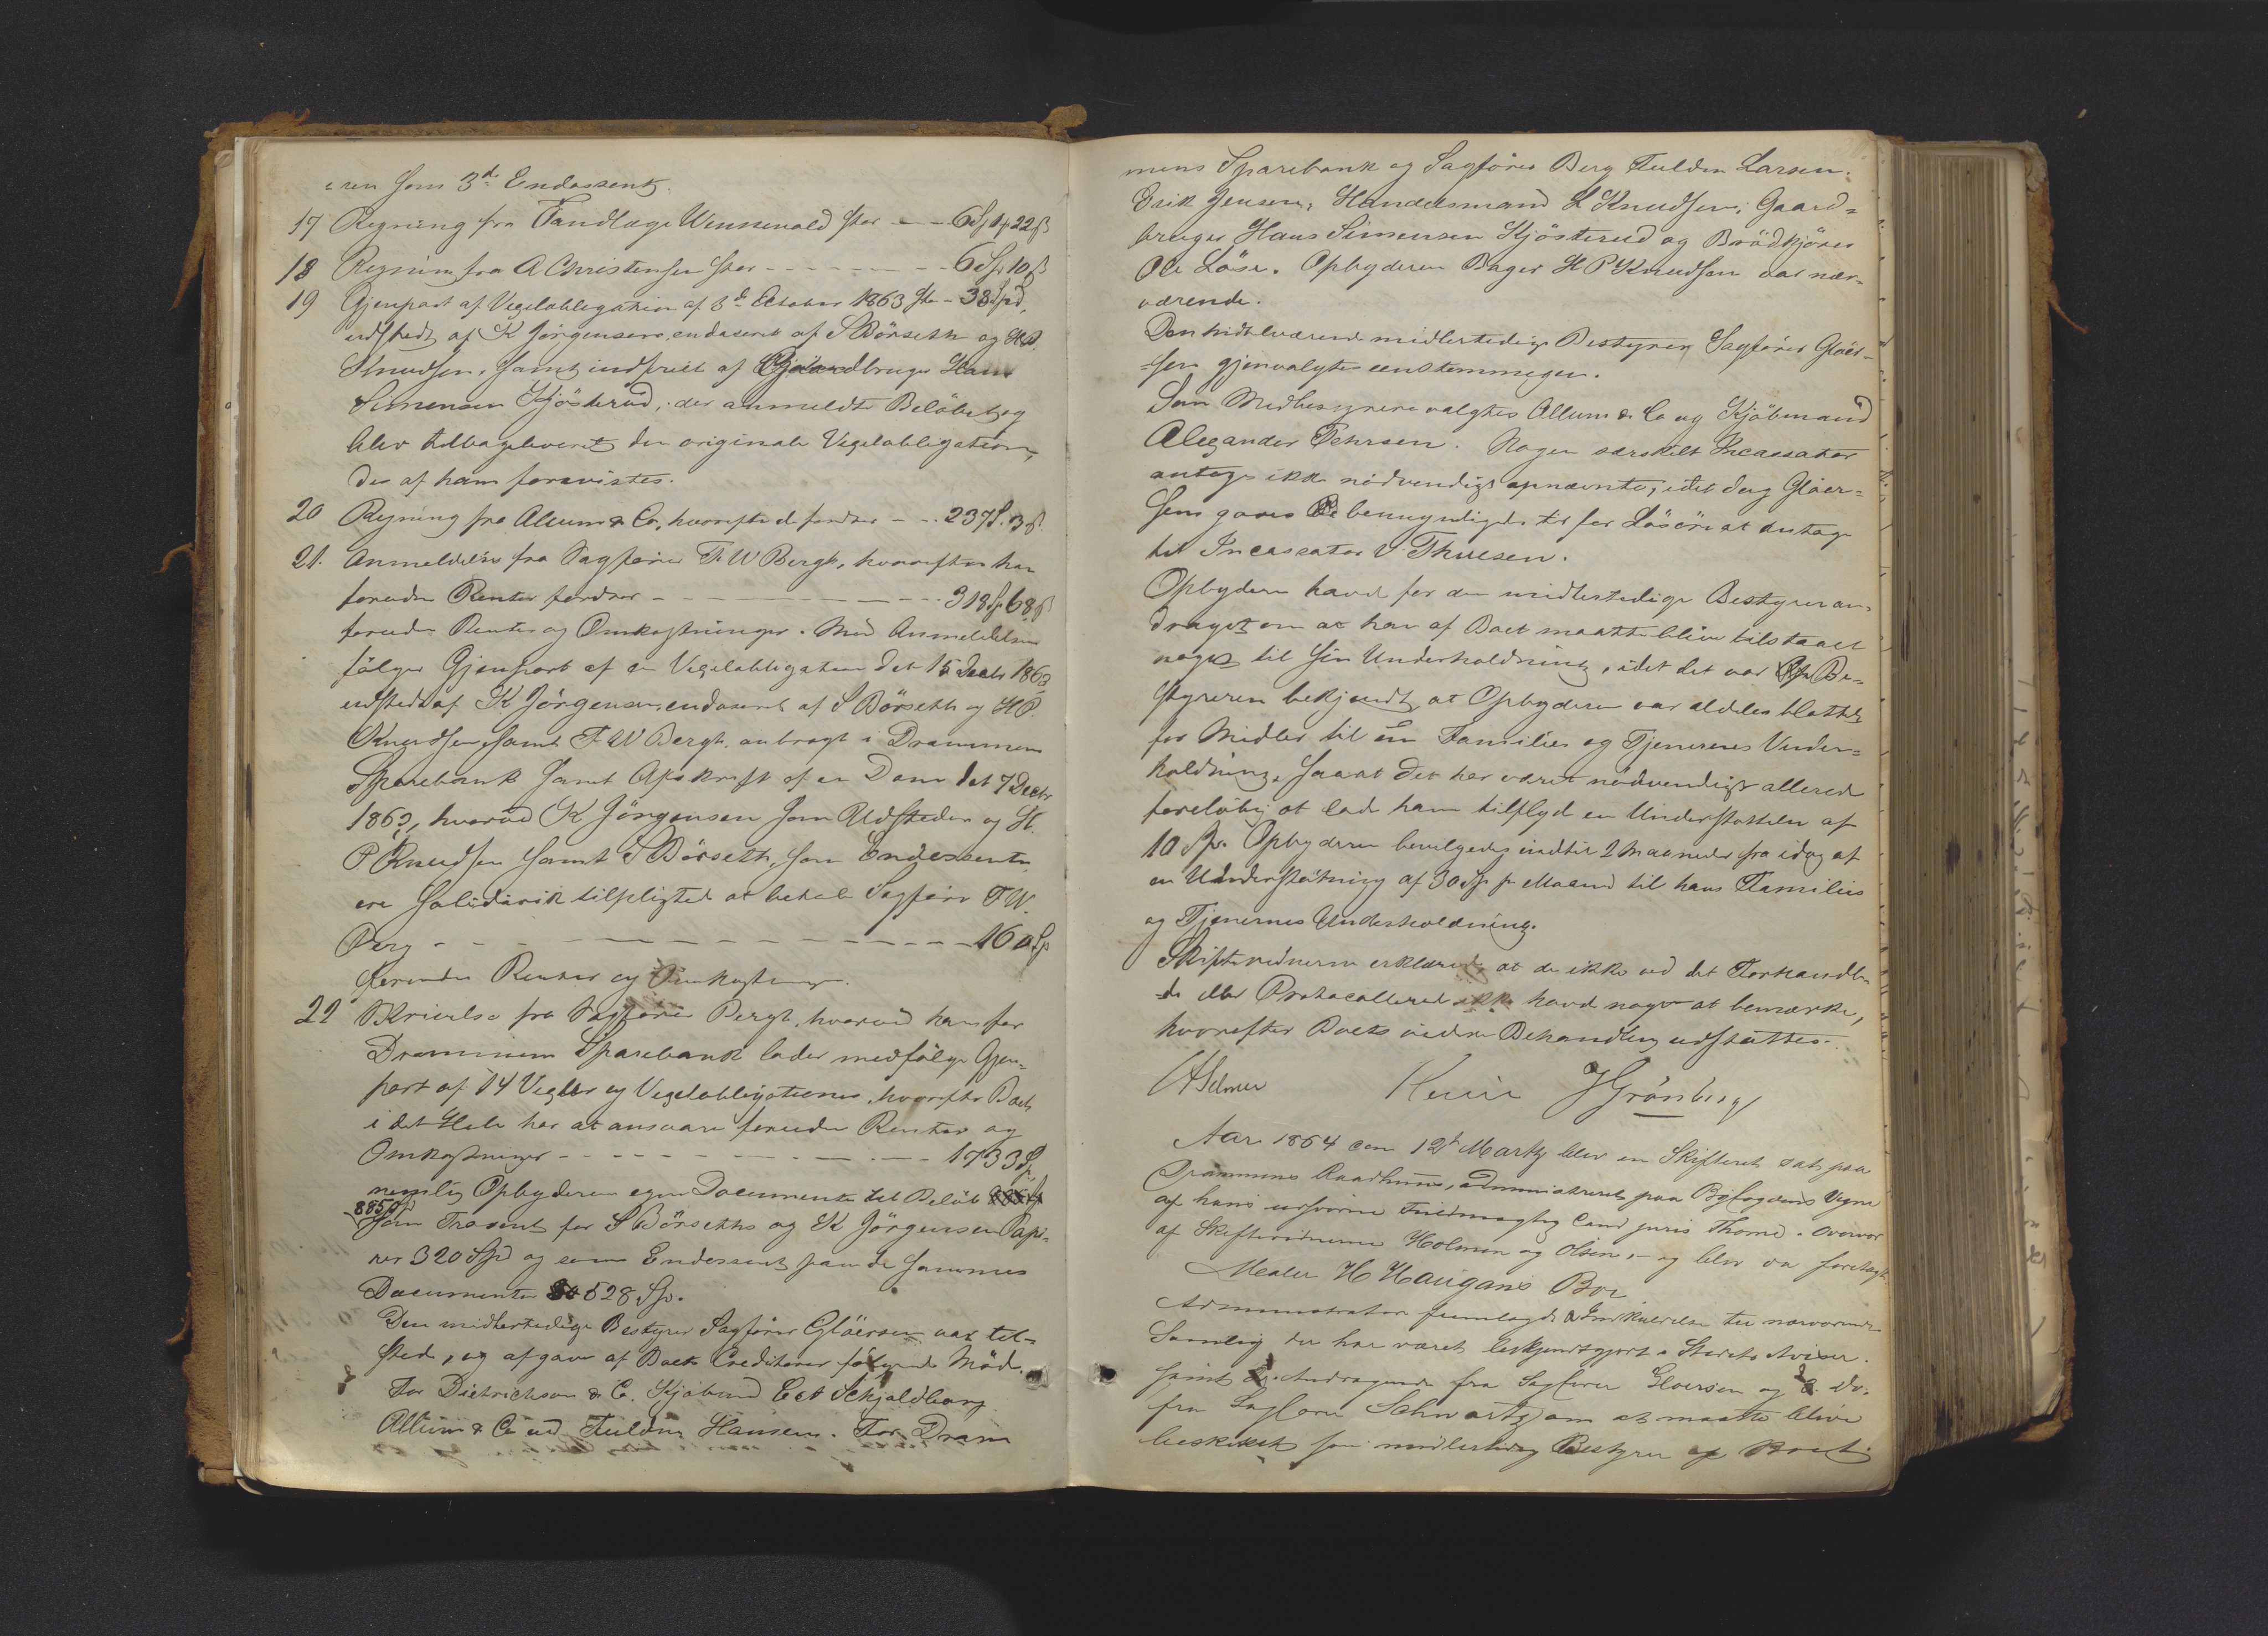 eren som 3d Endossent.
17 Regning fra Tandlæge Wennevold stor - - 6 Sp 1 # 22 ß
18 Regning fra A Christensen stor - - - - - - - - 6 Sp 10 ß
19 Gjenpart af Vexelobligation af 3d October 1863 stor - 38 Spd,
udstedt af K Jörgensen, endosseret af S Börseth og H.P.
Knudsen, samt indfriet af Gaardbruger Hans
Simensen Kjösterud, der anmeldte Belöbet og
blev tilbageleveret den originale Vexelobligation,
der af ham forevistes.
20 Regning fra Allum & Co, hvorefter de fordrer - - 237 S. 3 ß.
21. Anmeldelse fra Sagförer F. W Bergh, hvorefter han
foruden Renter fordrer - - - - - - - - - 318 Sp 68 ß
foruden Renter og Omkostninger. Med Anmeldelsen
fölger Gjenpart af en Vexelobligation dat 15 Decbr 1862
udstedt af K Jörgensen, endosseret af S Börseth og H P.
Knudsen, samt F W Bergh, anbragt i Drammens
Sparebank samt Afskrift af en Dom dat 7 Decbr
1863, hvorved K Jörgensen som Udsteder og H.
P Knudsen samt S Börseth, som Endossenter
ere solidarisk tilpligtet at betale Sagförer F W.
Berg - - - - - - - - - - - - - - - 160 Sp
foruden Renter og Omkostninger.
22 Skrivelse fra Sagförer Bergh, hvorved han for
Drammens Sparebank lader medfölge Gjen-
part af 14 Vexler og Vexelobligationer, hvorefter Boet
i det Hele har at ansvare foruden Renter og
Omkostninger - - - - - - - - - - 1733 Sp,
nemlig Opbyderens egne Documenter til Belöb
885 Sp
som Trasent for S Börseths og K Jörgensens Papi-
rer 320 Spd og som Endossent paa de sammes
Documenter 528 Sp.
Den midlertidige Bestyrer Sagförer Glöersen var til-
stede, og afgave af Boets Creditorer fölgende Möde.
For Dietrichson & C. Kjöbmd C A Schjoldborg
Allum & Co ved Fuldm Hansen. For Dram
mens Sparebank og Sagförer Berg Fuldm Larsen.
Erik Jensen, Handelsmand L Knudsen, Gaard-
bruger Hans Simensen Kjösterud og Brödkjörer
Ole Löse. Opbyderen Bager H P Knudsen var nær-
værende.
Den hidtilværende midlertidige Bestyrer, Sagförer Glöer-
sen gjenvalgtes eenstemmigen.
Som Medbestyrere valgtes Allum & Co og Kjöbmand
Alexander Pehrsen. Nogen særskilt Incassator
antoges ikke nödvendigt opnævnte, idet dog Glöer-
sen gaves bemyndigelse til for Lösöre at antage
til Incassator V Thuesen.
Opbyderen havde for den midlertidige Bestyrer an-
draget om at han af Boet maatte blive tilstaaet
noget til sin Underholdning, idet det var Be-
styreren bekjendt, at Opbyderen var aldeles blottet
for Midler til sin Families og Tjeneres Under-
holdning, saaat det har været nödvendigt allerede
foreløbig at lade ham tilflyde en Understöttelse af
10 Sp. Opbyderen bevilgedes indtil 2 Maaneder fra idag af
en Understötning af 30 Sp pr Maaned til hans Families
og Tjenernes Underholdning.
Skifteviednerne erklærede at de ikke ved det Forhandle-
de eller Protocollerede ikke havde noget at bemærke,
hvorefter Boets videre Behandling udsattes.
Selmer J Grönberg
Aar 1864 den 12t Marts blev en Skifteret sat paa
Drammens Raadhuus, administreret paa Byfogdens Vegne
af hans edsvorne Fuldmægtig Cand juris Thome. Overvær
af Skiftevidnerne Holmen og Olsen, - og blev da foretaget
Maler H Haugans Boe
Administrator fremlagde Indkaldelse til nærværende
Samling der har været bekjendtgjort i Stadets Aviser.
samt Andragende fra Sagförer Gloersen og do.
fra Sagförer Schwartz om at maatte blive
beskikket som midlertidig Bestyrer af Boet.